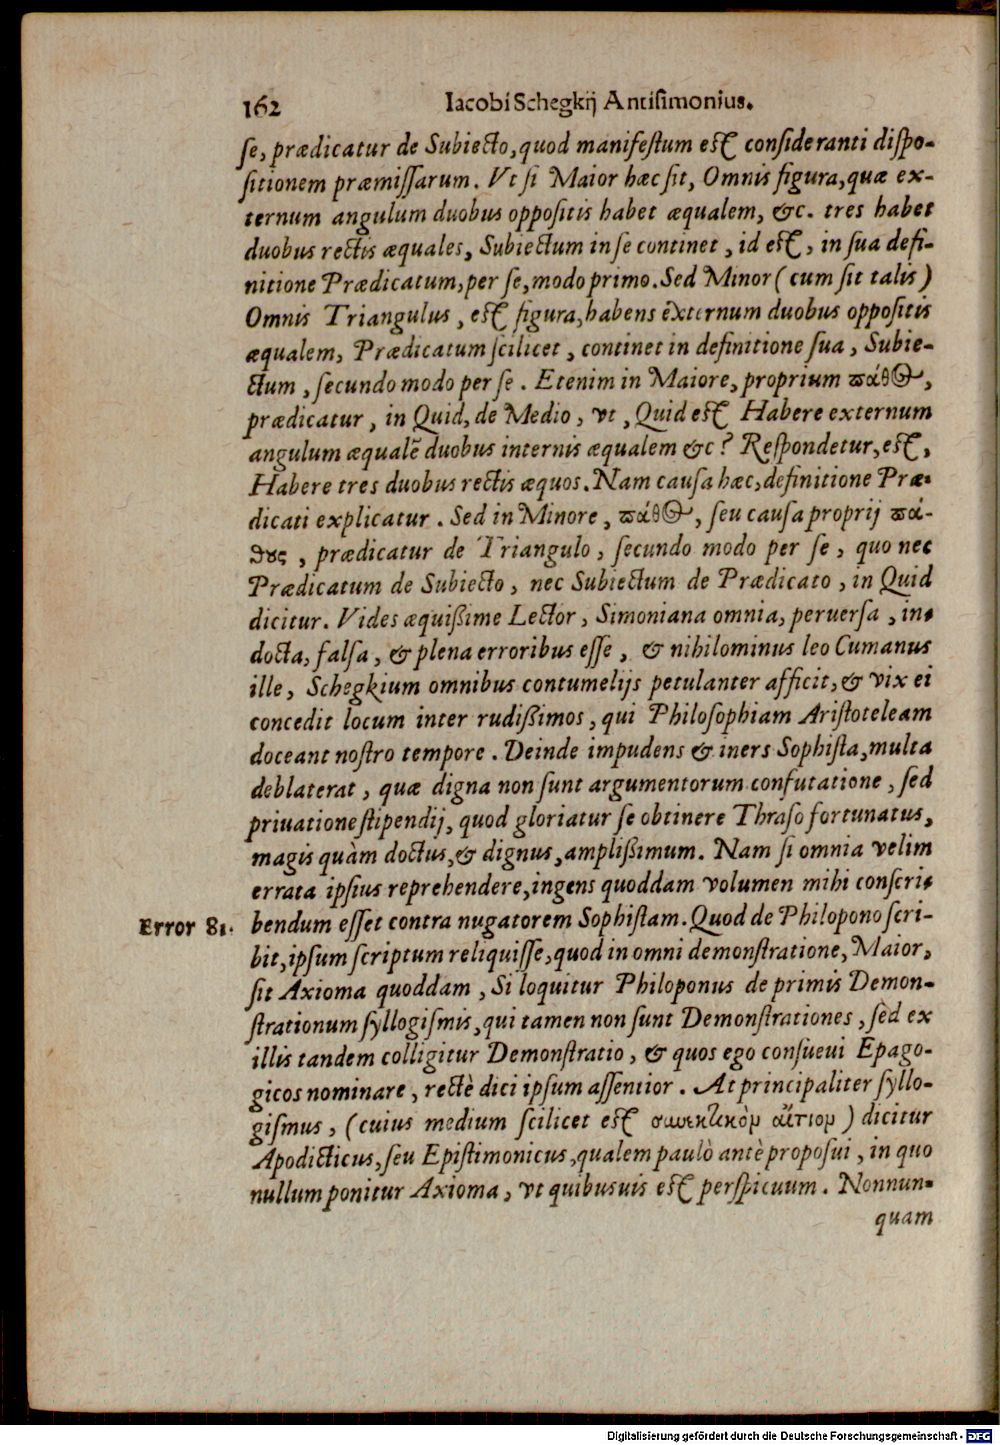 162 Iacobi Schegkij Antisimonius.
se, prædicatur de Subiecto, quod manifestum est consideranti dispo-
sitionem præmissarum. Vt si Maior hæc sit, Omnis figura, quæ ex-
ternum angulum duobus oppositis habet æqualem, &c. tres habet
duobus rectis æquales, Subiectum in se continet, id est, in sua defi-
nitione Prædicatum, per se, modo primo. Sed Minor (cum sit talis)
Omnis Triangulus, est figura, habens externum duobus oppositis
æqualem, Prædicatum scilicet, continet in definitione sua, Subie-
ctum, secundo modo per se. Etenim in Maiore, proprium πάθος,
prædicatur, in Quid, de Medio, vt, Quid est Habere externum
angulum æqualē duobus internis æqualem &c? Respondetur, est,
Habere tres duobus rectis æquos. Nam causa hæc, definitione Præ-
dicati explicatur. Sed in Minore, πάθος, seu causa proprij πά-
θους, prædicatur de Triangulo, secundo modo per se, quo nec
Prædicatum de Subiecto, nec Subiectum de Prædicato, in Quid
dicitur. Vides æquißime Lector, Simoniana omnia, peruersa, in-
docta, falsa, & plena erroribus esse, & nihilominus leo Cumanus
ille, Schegkium omnibus contumelijs petulanter afficit, & vix ei
concedit locum inter rudißimos, qui Philosophiam Aristoteleam
doceant nostro tempore. Deinde impudens & iners Sophista, multa
deblaterat, quæ digna non sunt argumentorum confutatione, sed
priuatione stipendij, quod gloriatur se obtinere Thraso fortunatus,
magis quàm doctus, & dignus, amplißimum. Nam si omnia velim
errata ipsius reprehendere, ingens quoddam volumen mihi conscri-
Error 81. bendum esset contra nugatorem Sophistam. Quod de Philopono scri-
bit, ipsum scriptum reliquisse, quod in omni demonstratione, Maior,
sit Axioma quoddam, Si loquitur Philoponus de primis Demon-
strationum syllogismis, qui tamen non sunt Demonstrationes, sed ex
illis tandem colligitur Demonstratio, & quos ego consueui Epago-
gicos nominare, rectè dici ipsum assentior. At principaliter syllo-
gismus, (cuius medium scilicet est συνεκτικὸν αἴτιον) dicitur
Apodicticus, seu Epistimonicus, qualem paulò antè proposui, in quo
nullum ponitur Axioma, vt quibusuis est perspicuum. Nonnun-
quam
Digitalisierung gefördert durch die Deutsche Forschungsgemeinschaft - DFG